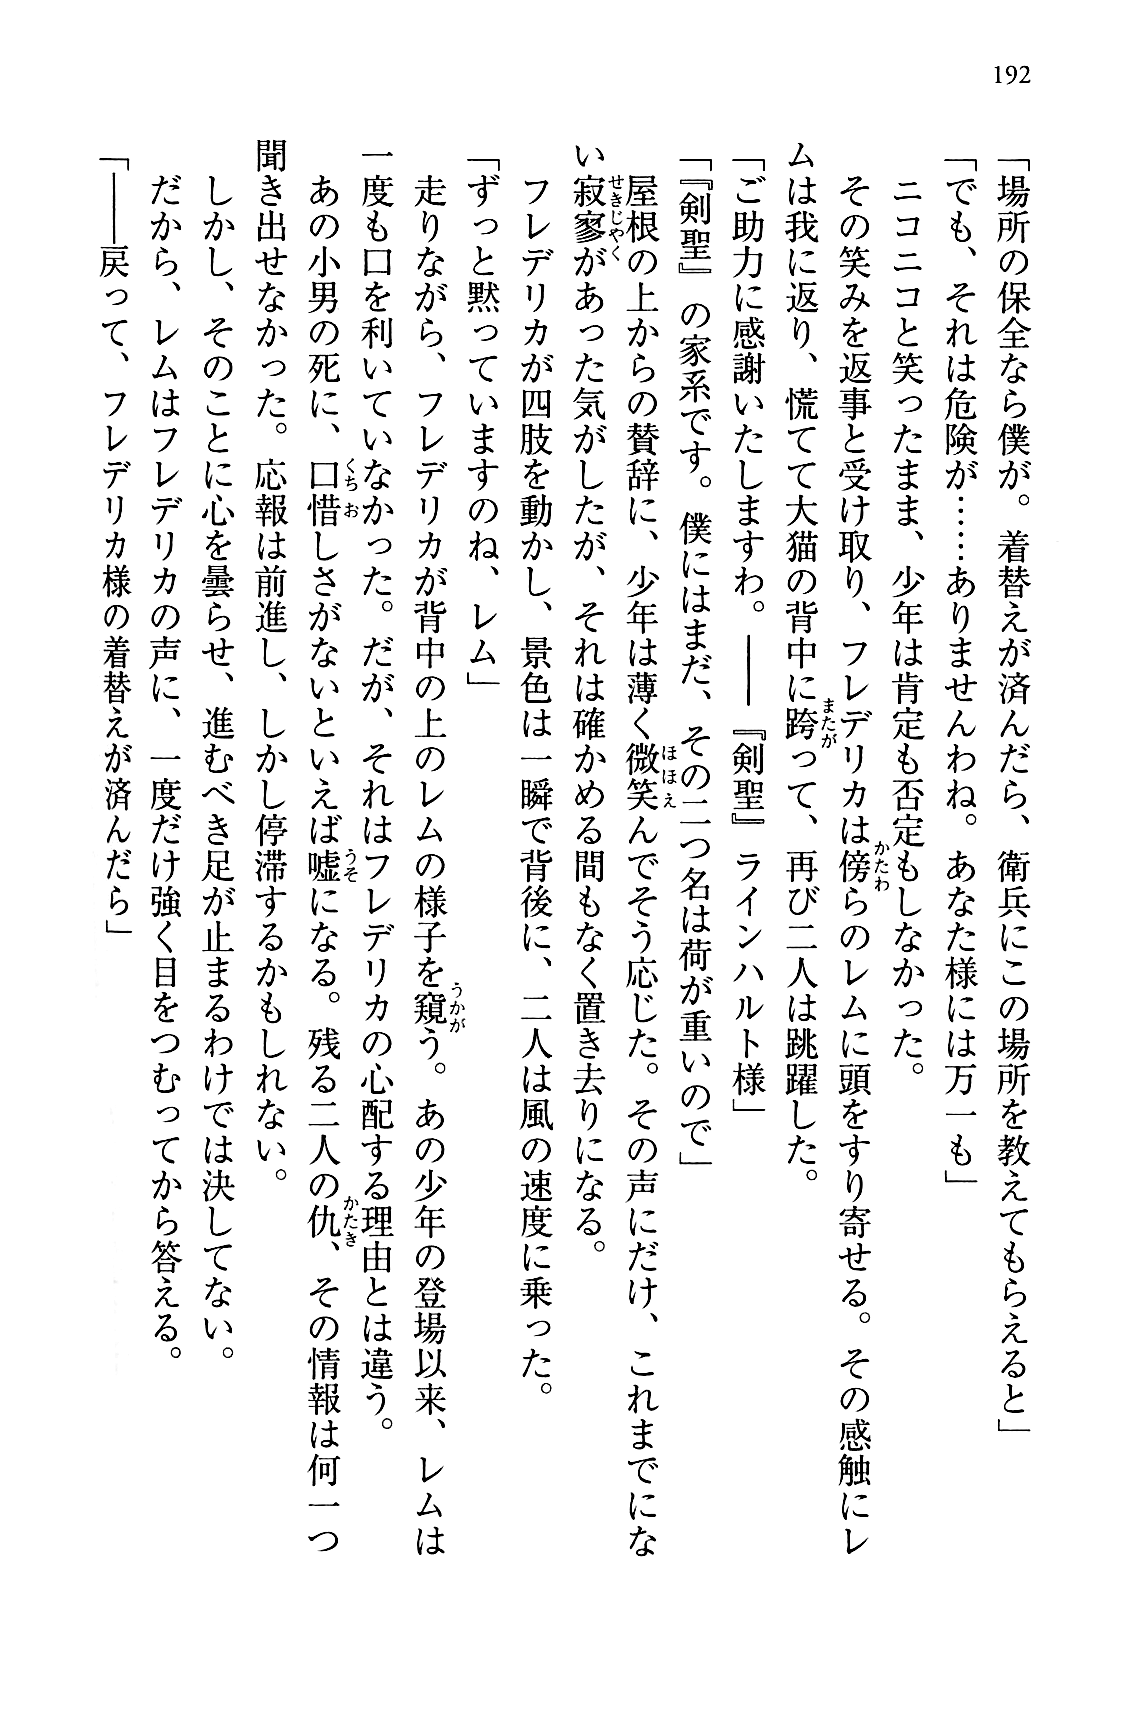 192
「場所の保全なら僕が。着替えが済んだら、衛兵にこの場所を教えてもらえると」
「でも、それは危険が……ありませんわね。あなた様には万一も」
ニコニコと笑ったまま、少年は肯定も否定もしなかった。
その笑みを返事と受け取り、フレデリカは傍らのレムに頭をすり寄せる。その感触にレ
ムは我に返り、慌てて大猫の背中に跨って、再び二人は跳躍した。
「ご助力に感謝いたしますわ。――『剣聖』ラインハルト様」
「『剣聖』の家系です。僕にはまだ、その二つ名は荷が重いので」
屋根の上からの賛辞に、少年は薄く微笑んでそう応じた。その声にだけ、これまでにな
い寂寥があった気がしたが、それは確かめる間もなく置き去りになる。
フレデリカが四肢を動かし、景色は一瞬で背後に、二人は風の速度に乗った。
「ずっと黙っていますのね、レム」
走りながら、フレデリカが背中の上のレムの様子を窺う。あの少年の登場以来、レムは
一度も口を利いていなかった。だが、それはフレデリカの心配する理由とは違う。
あの小男の死に、口惜しさがないといえば嘘になる。残る二人の仇、その情報は何一つ
聞き出せなかった。応報は前進し、しかし停滞するかもしれない。
しかし、そのことに心を曇らせ、進むべき足が止まるわけでは決してない。
だから、レムはフレデリカの声に、一度だけ強く目をつむってから答える。
「――戻って、フレデリカ様の着替えが済んだら」